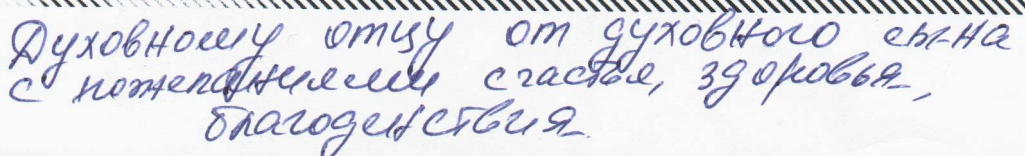 Духовному отцу от духовного сына
с пожеланиями счастья, здоровья,
благоденствия